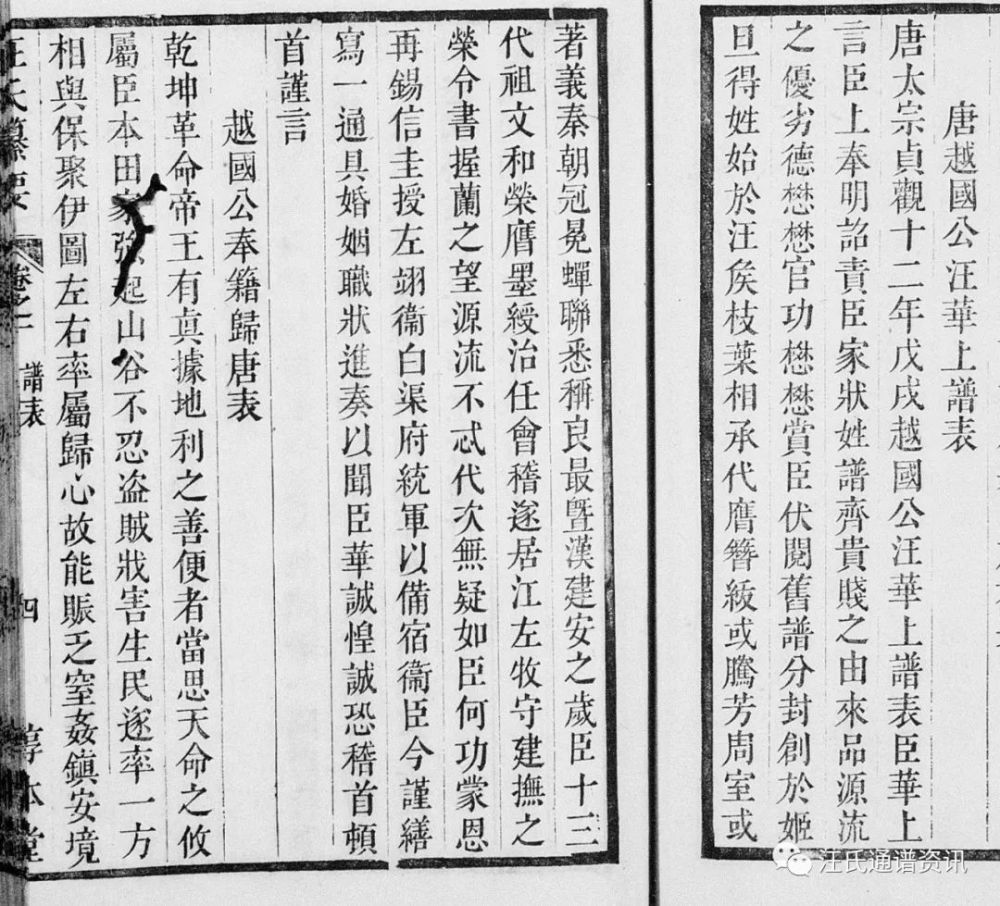 唐越國公汪華上譜表
唐太宗貞觀十二年戊戌越國公汪華上譜表臣華上
言臣上奉明詔責臣家狀姓譜齊貴賤之由來品源流
之優劣德懋懋官功懋懋賞臣伏閱舊譜分封創於姬
旦得姓始於汪矦枝葉相承代膺簪紱或騰芳周室或
著義秦朝冠冕蟬聯悉稱良最曁漢建安之歲臣十三
代祖文和榮膺墨綬治任會稽遂居江左牧守建撫之
榮令書握蘭之望源流不忒代次無疑如臣何功蒙恩
再錫信圭授左翊衞白渠府統軍以備宿衞臣今謹繕
寫一通具婚姻職狀進奏以聞臣華誠惶誠恐稽首頓
首謹言
越國公奉籍歸唐表
乾坤革命帝王有眞據地利之善便者當思天命之攸
屬臣本田家強起山谷不忍盗賊戕害生民遂率一方
相與保聚伊圖左右率屬歸心故能賑乏窒姦鎮安境
汪氏纂要 卷之二 譜表 四 淳本堂
汪氏通谱资讯